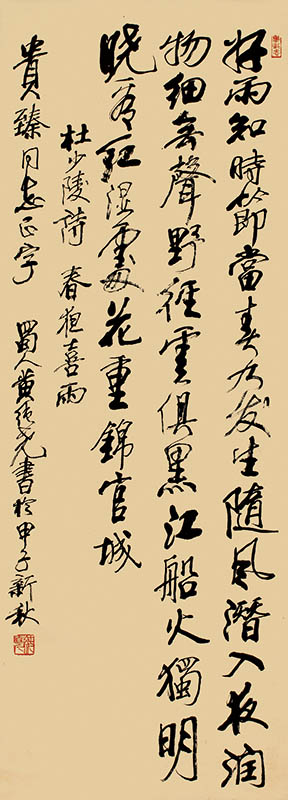 好雨知時節當春乃发生隨風潛入夜潤
物細無聲野徑雲俱黑江船火獨明
曉看紅濕處花重錦官城
杜少陵詩 春夜喜雨
貴臻同志正字 蜀人黄書於甲子新秋